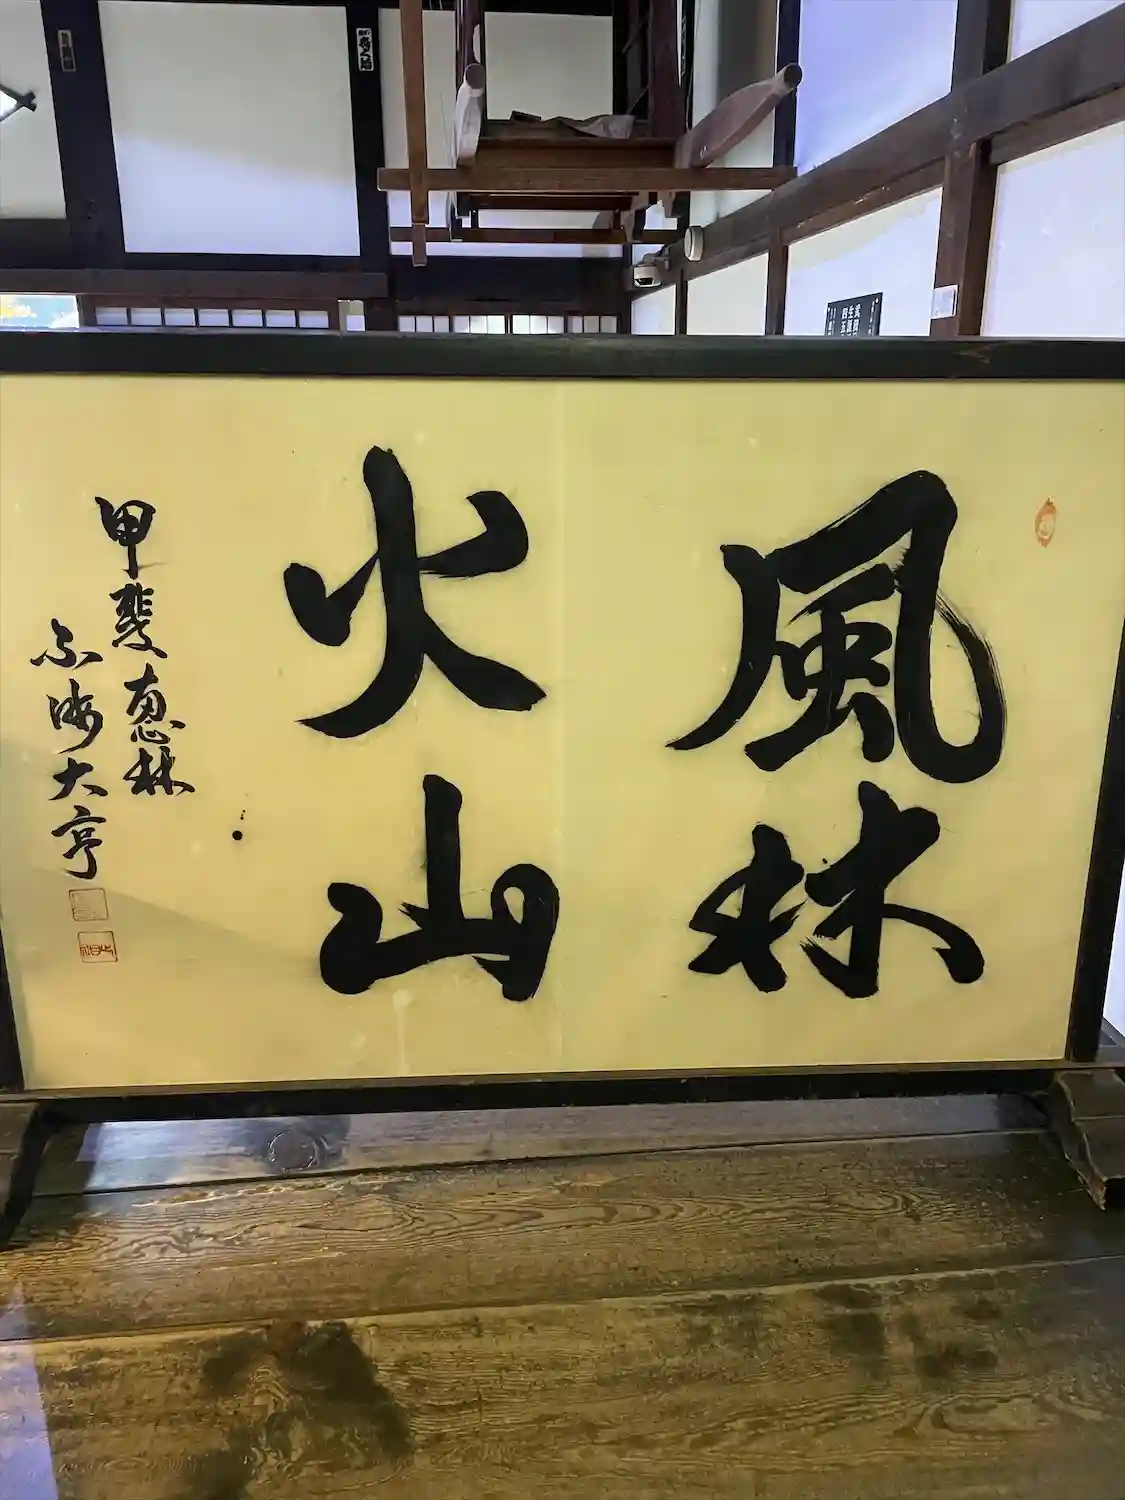 風林
火山
甲斐恵林
不涉大亨